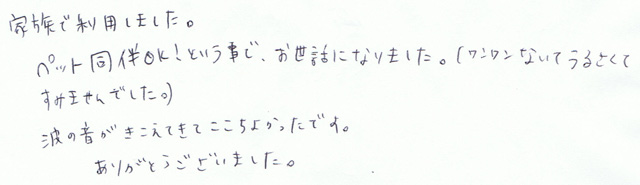 家族で利用しました。
ペット同伴OK!という事で、お世話になりました。(ワンワンないてうるさくて
すみませんでした。)
波の音がきこえてきてここちよかったです。
ありがとうございました。